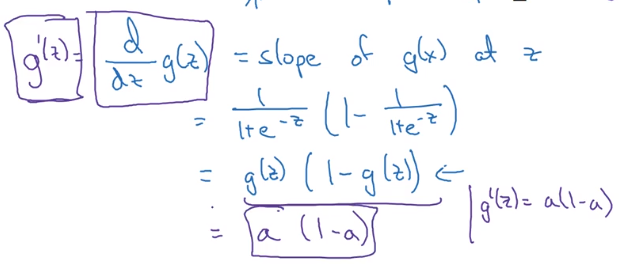 g'(z) = d/dz g(z) = slope of g(x) at z
= 1/(1+e^{-z}) (1 - 1/(1+e^{-z}))
= g(z) (1 - g(z)) ←
= a (1-a)
g'(z) = a(1-a)